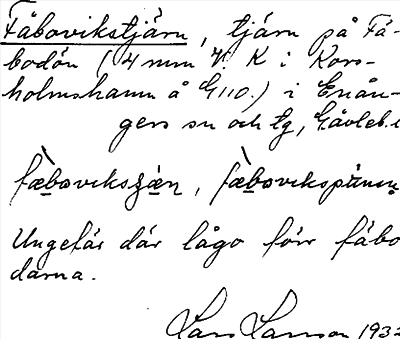 Fäbovikstjärn, tjärn på Fä-
bodön (4 mm V. K i Kors-
holmshamn å G110.) i Enån-
gers sn och tg, Gävleb.
fæboviksjæn, fæboviks
Ungefär där lågo förr fäbo
darna.
Lars Larsson 1932